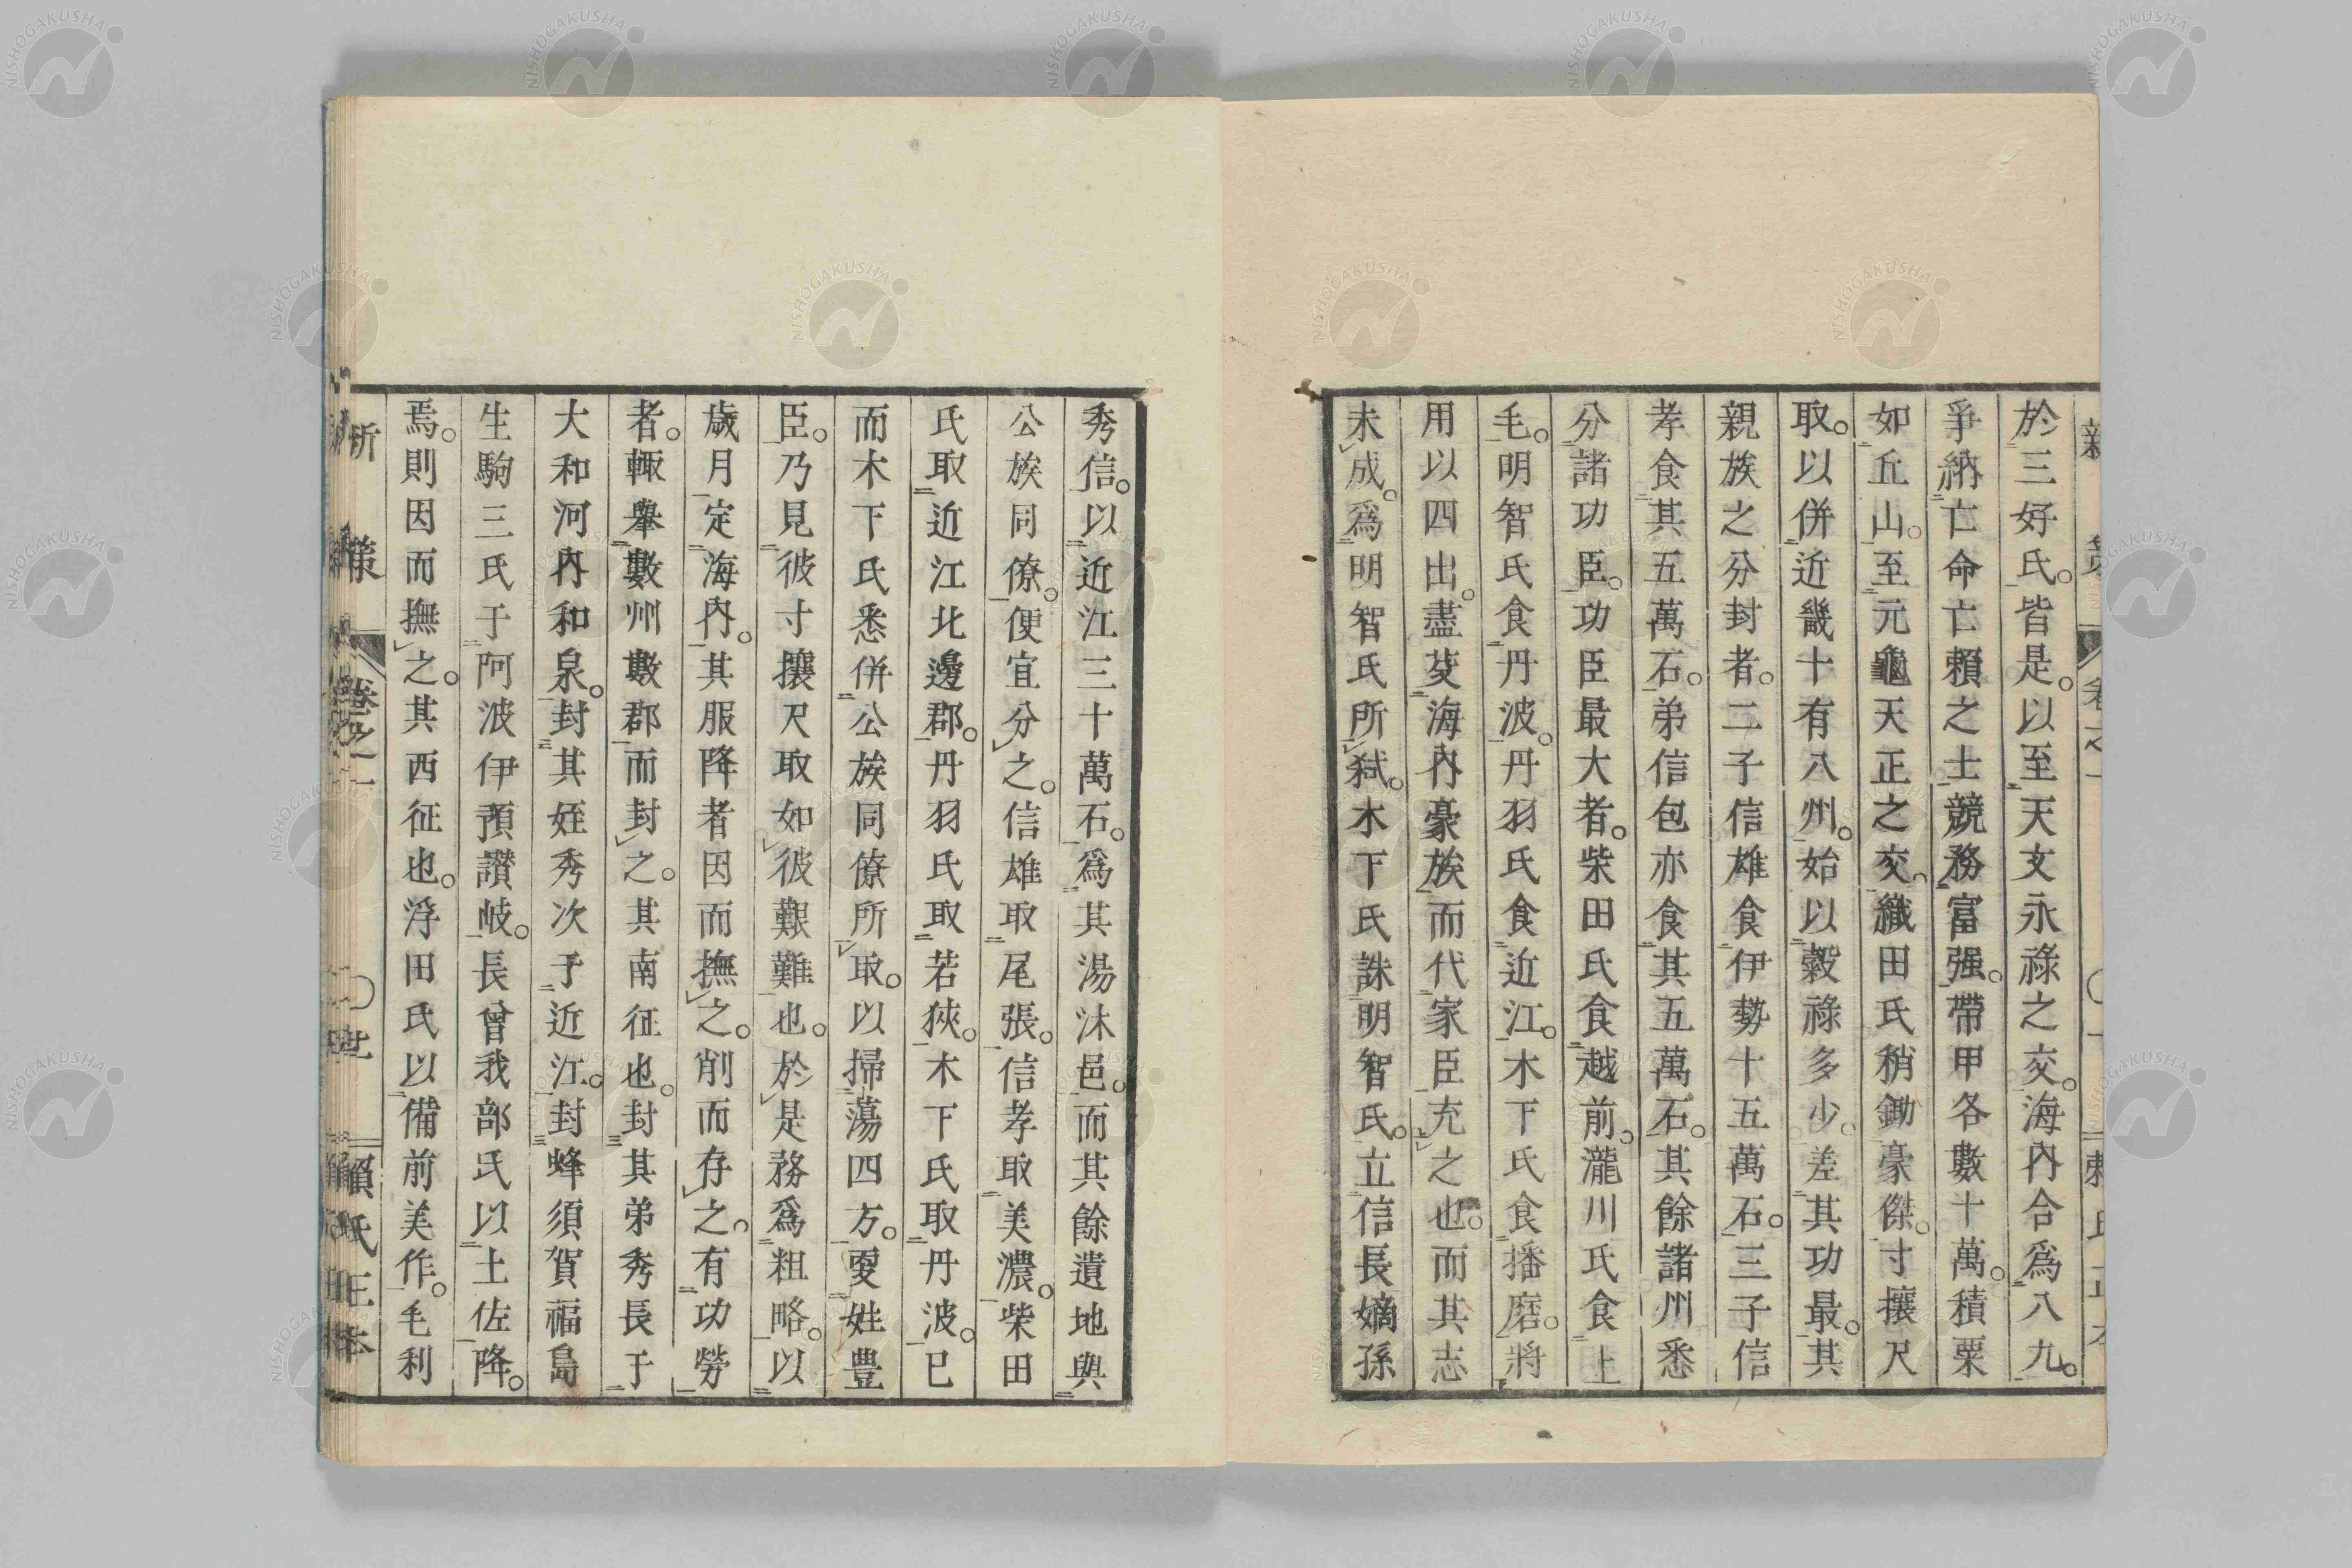 於三好氏。皆是。以至天文永祿之交。海內合爲八九。
爭納亡命亡賴之士。競務富强。帶甲各數十萬。積粟
如丘山。至元龜天正之交。織田氏稍鋤豪傑。寸攘尺
取。以併近畿十有八州。始以穀祿多少。差其功最。其
親族之分封者。二子信雄食伊勢十五萬石。三子信
孝食其五萬石。弟信包亦食其五萬石。其餘諸州悉
分諸功臣。功臣最大者。柴田氏食越前。瀧川氏食上
毛。明智氏食丹波。丹羽氏食近江。木下氏食播磨。將
用以四出。盡芟海內豪族而代家臣充之也。而其志
未成。爲明智氏所弑。木下氏誅明智氏。立信長嫡孫
秀信。以近江三十萬石。爲其湯沐邑。而其餘遺地與
公族同僚。便宜分之。信雄取尾張。信孝取美濃。柴田
氏取近江北邊郡。丹羽氏取若狹。木下氏取丹波。已
而木下氏悉併公族同僚所取。以掃蕩四方。更姓豐
臣。乃見彼寸攘尺取如彼艱難也。於是務爲粗略。以
歲月定海內。其服降者因而撫之。削而存之。有功勞
者。輙擧數州數郡而封之。其南征也。封其弟秀長于
大和河內和泉。封其姪秀次于近江。封蜂須賀福島
生駒三氏于阿波伊預讚岐。長曾我部氏以土佐降。
焉。則因而撫之。其西征也。浮田氏以備前美作。毛利
新策 卷之一 〇 賴氏正本